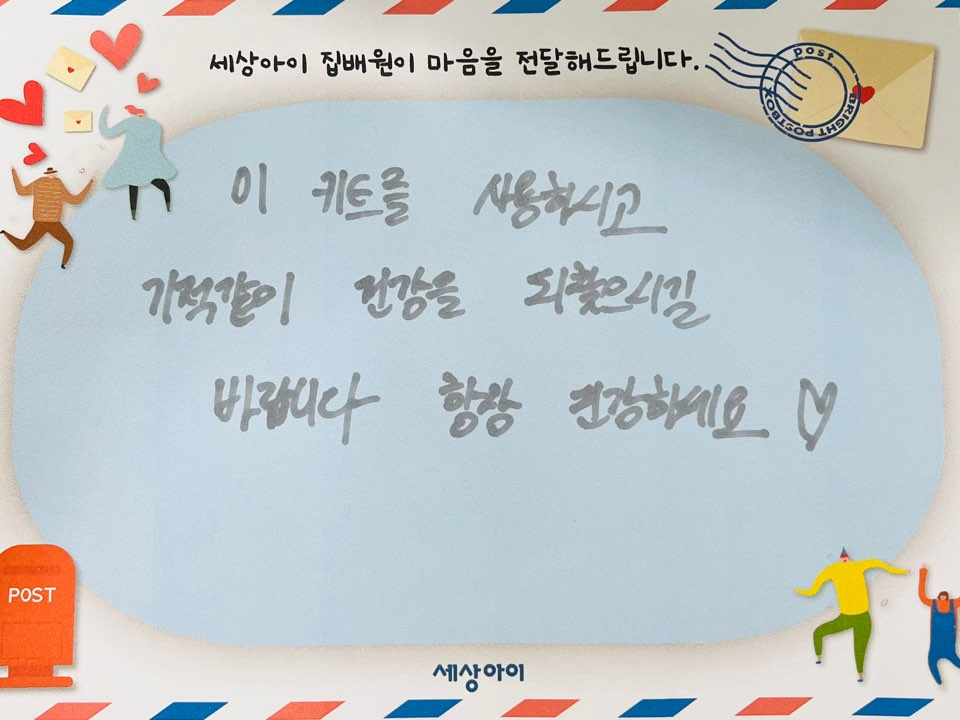 세상아이 집배원이 마음을 전달해드립니다.
post
BRIGHT POSTBOX
이 키트를 사용하시고
기적같이 건강을 되찾으시길
바랍니다 항상 건강하세요 ♡
POST
세상아이